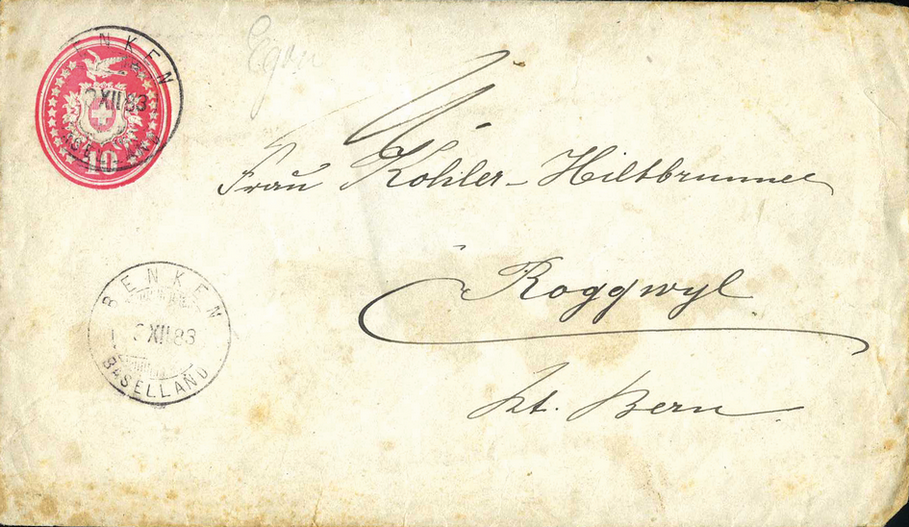 BENKEN
XII 83
10
Frau Kohler-Hiltbrunner
Roggwyl
Kt. Bern
BENKEN
XII 83
BASELLAND